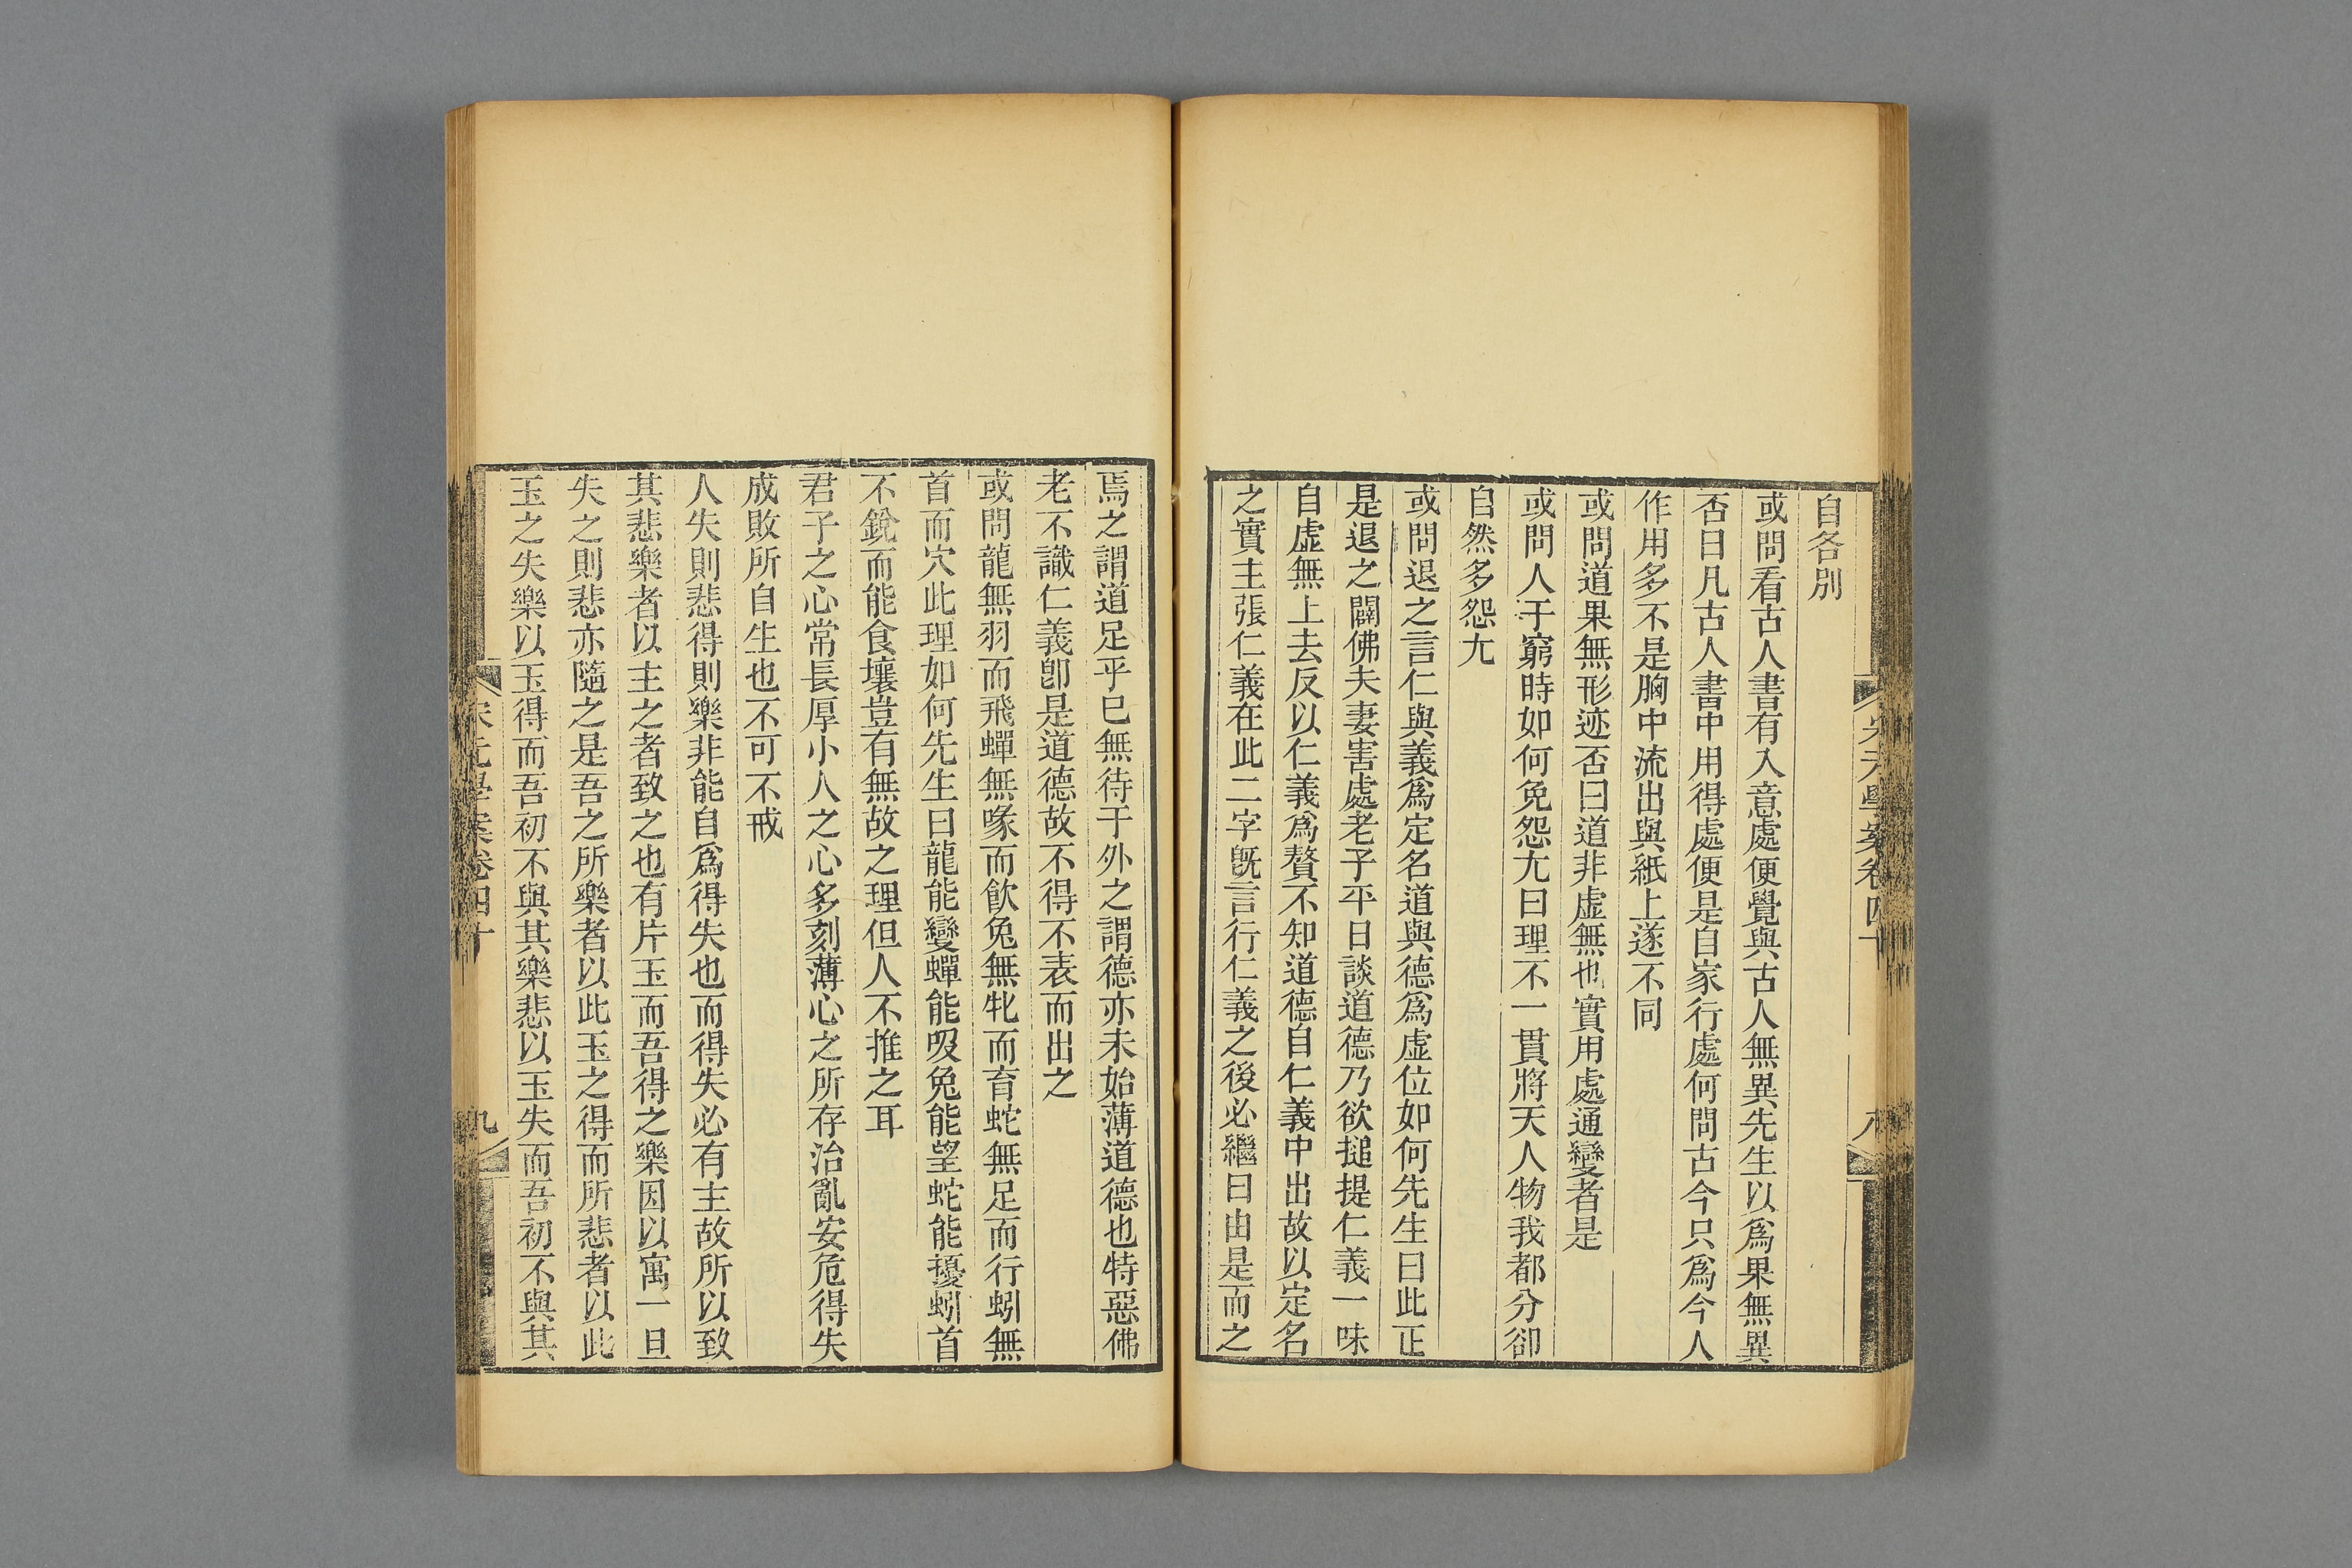 宋元學案卷四十
八
自各別
或問看古人書有入意處便覺與古人無異先生以爲果無異
否曰凡古人書中用得處便是自家行處何問古今只爲今人
作用多不是胸中流出與紙上遂不同
或問道果無形迹否曰道非虛無也實用處通變者是
或問人于窮時如何免怨尤曰理不一貫將天人物我都分卻
自然多怨尤
或問退之言仁與義爲定名道與德爲虛位如何先生曰此正
是退之闢佛夫妻害處老子平日談道德乃欲搥提仁義一味
自虛無上去反以仁義爲贅不知道德自仁義中出故以定名
之實主張仁義在此二字旣言行仁義之後必繼曰由是而之
焉之謂道足乎已無待于外之謂德亦未始薄道德也特惡佛
老不識仁義卽是道德故不得不表而出之
或問龍無羽而飛蟬無喙而飮兔無牝而育蛇無足而行蚓無
首而穴此理如何先生曰龍能變蟬能吸兔能望蛇能擾蚓首
不銳而能食壤豈有無故之理但人不推之耳
君子之心常長厚小人之心多刻薄心之所存治亂安危得失
成敗所自生也不可不戒
人失則悲得則樂非能自爲得失也而得失必有主故所以致
其悲樂者以主之者致之也有片玉而吾得之樂因以寓一旦
失之則悲亦隨之是吾之所樂者以此玉之得而所悲者以此
玉之失樂以玉得而吾初不與其樂悲以玉失而吾初不與其
宋元學案卷四十
九